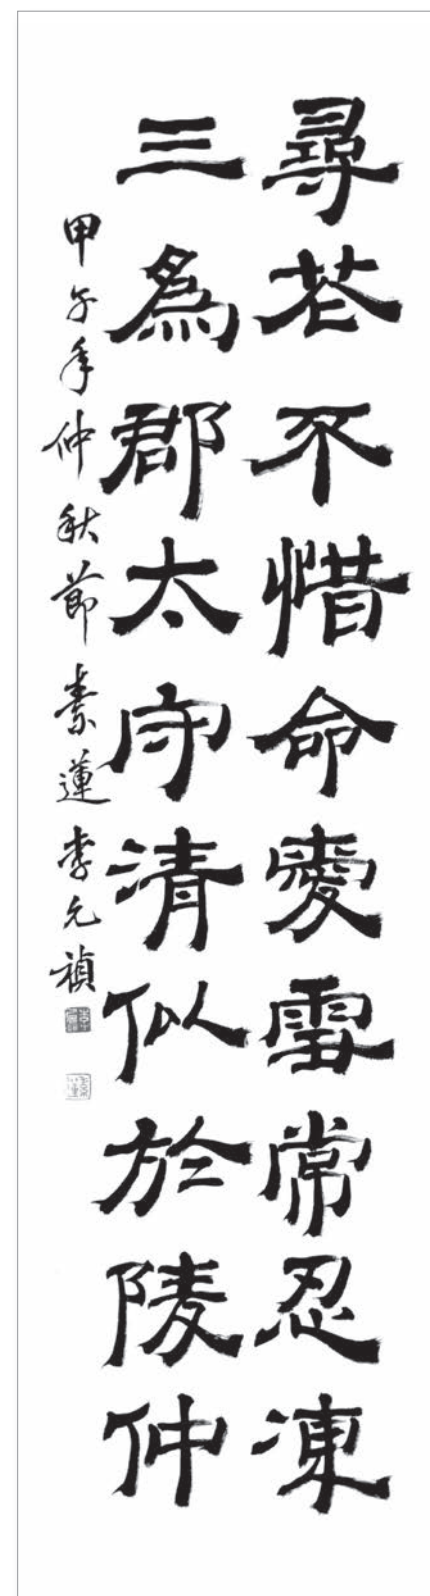 尋花不惜命愛雪常忍凍
三爲郡太守清似於陵仲
甲午年仲秋節素蓮李允禎